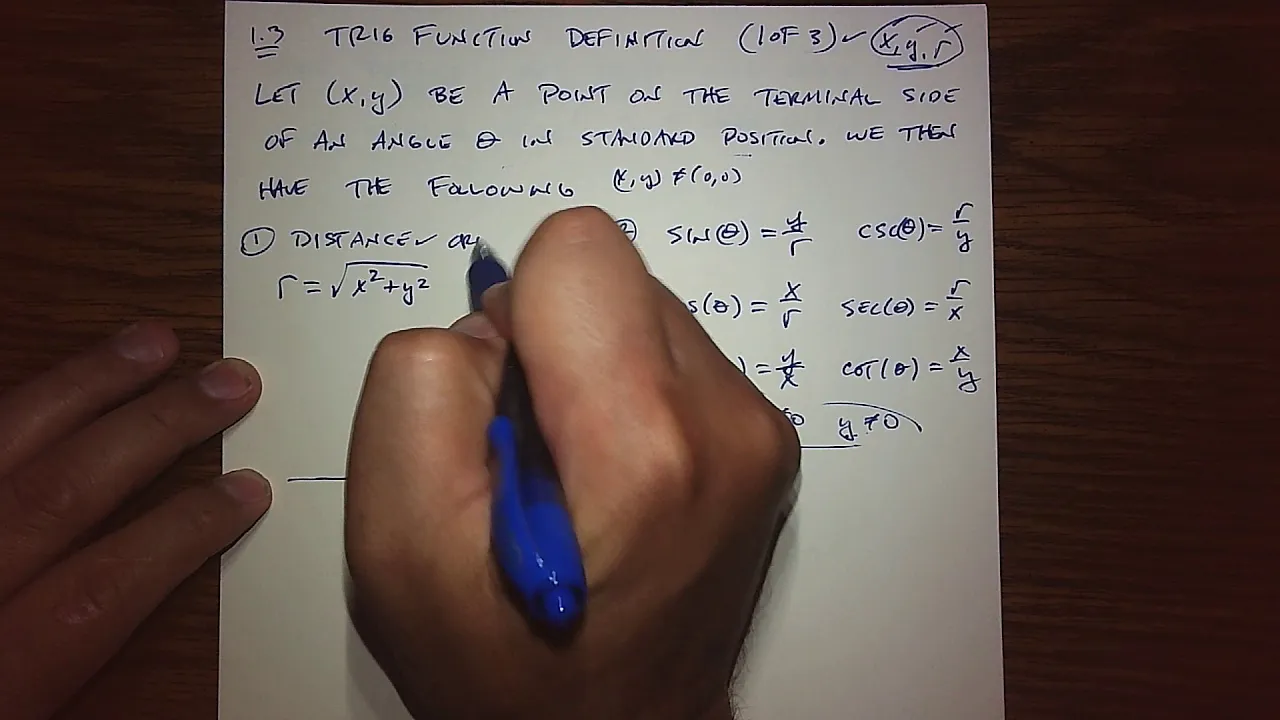 1.3 TRIG FUNCTION DEFINITION (1 OF 3) ✓ x, y, r
LET (x,y) BE A POINT ON THE TERMINAL SIDE
OF AN ANGLE θ IN STANDARD POSITION. WE THEN
HAVE THE FOLLOWING (x,y) ≠ (0,0)
① DISTANCE ✓ OR
r = √x²+y²
② SIN(θ) = y/r CSC(θ) = r/y
S(θ) = x/r SEC(θ) = r/x
) = y/x COT(θ) = x/y
≠0 y ≠ 0